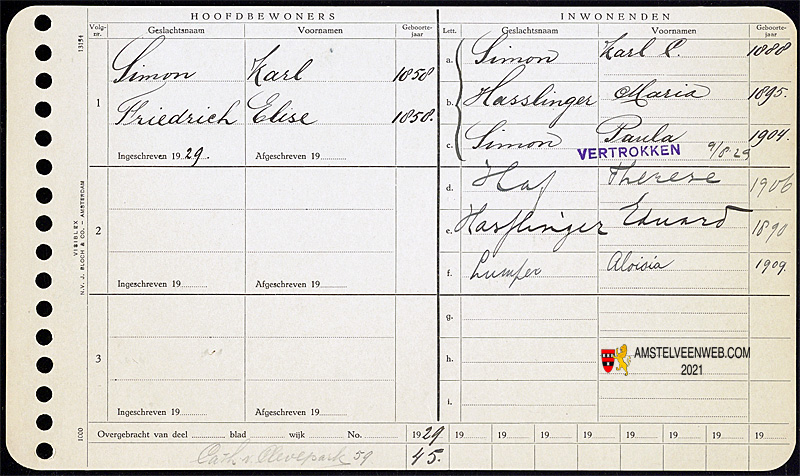 HOOFDBEWONERS
INWONENDEN
Volg-nr. Geslachtsnaam Voornamen Geboorte-jaar
Lett. Geslachtsnaam Voornamen Geboorte-jaar
1
Simon Karl 1858
Friedrich Elise 1858.
Ingeschreven 1929. Afgeschreven 19
2
Ingeschreven 19 Afgeschreven 19
3
Ingeschreven 19 Afgeschreven 19
a. Simon Karl C. 1888
b. Hasslinger Maria 1895.
c. Simon Paula 1904.
VERTROKKEN 9/8-29
d. Haf Therese 1906
e. Hasslinger Eduard 1890
f. Lumper Aloisia 1909.
g.
h.
i.
AMSTELVEENWEB.COM
2021
Overgebracht van deel blad wijk No. 1929 19 19 19 19 19 19 19 19
Cath v Clevepark 59 45.
13154
VISIBLEX
N.V. J. BLOCH & CO. — AMSTERDAM
1000